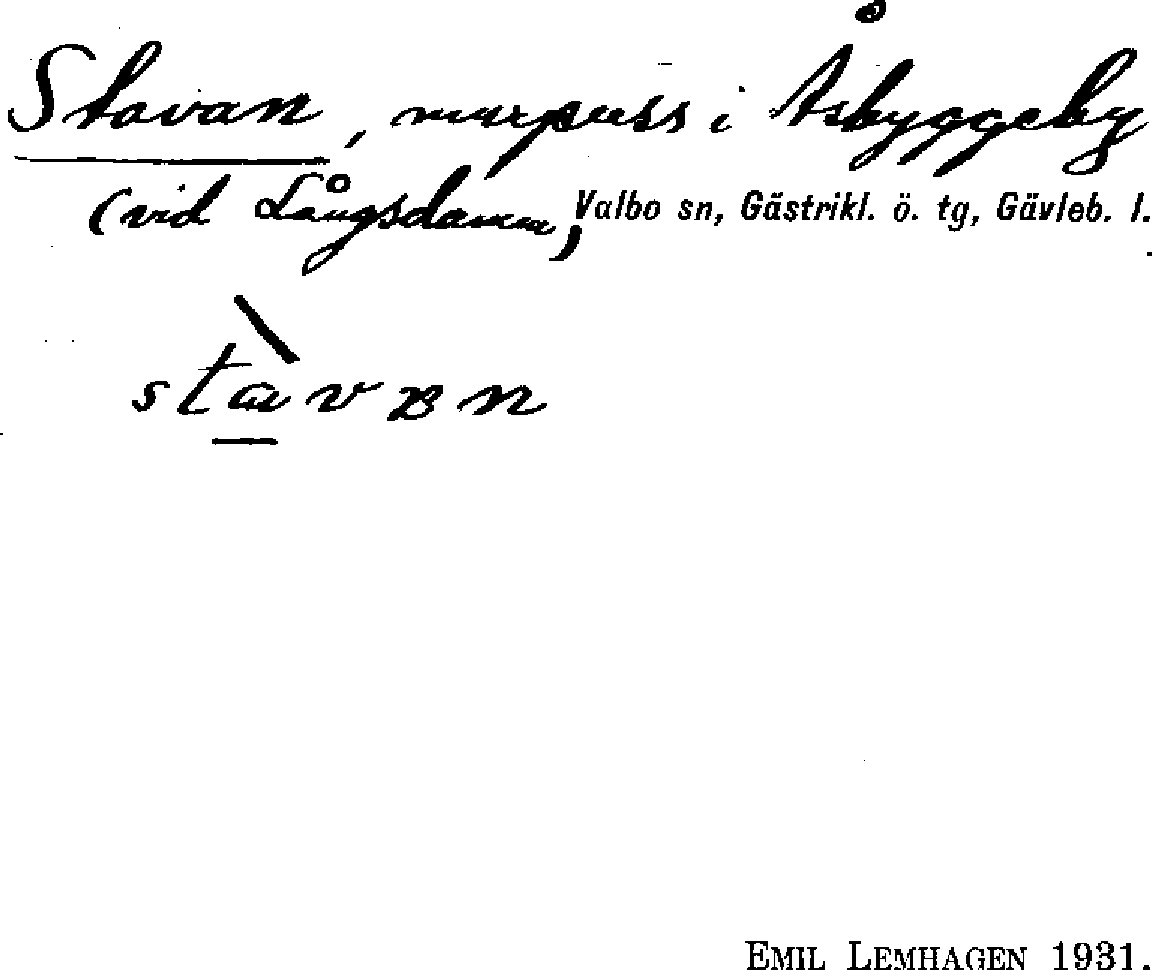 Stavan, murpuss i Åsbyggeby
(vid Långsdamm), Valbo sn, Gästrikl. ö. tg, Gävleb. l.
EMIL LEMHAGEN 1931.